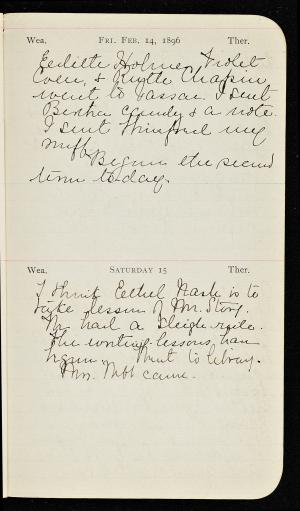 Wea. FRI. FEB. 14, 1896 Ther.
Edith Holmes, Violet
Coen, & Kytte Chapin
went to Vassar. I sent
Bertha candy & a note.
I sent Winifred my
muff.
Began the second
term to-day.
Wea. SATURDAY 15 Ther.
I think Eethel Nash is to
take lessons of Mr. Story.
We had a sleigh-ride.
The writing-lessons, have
begun. Went to library.
Mrs. came.